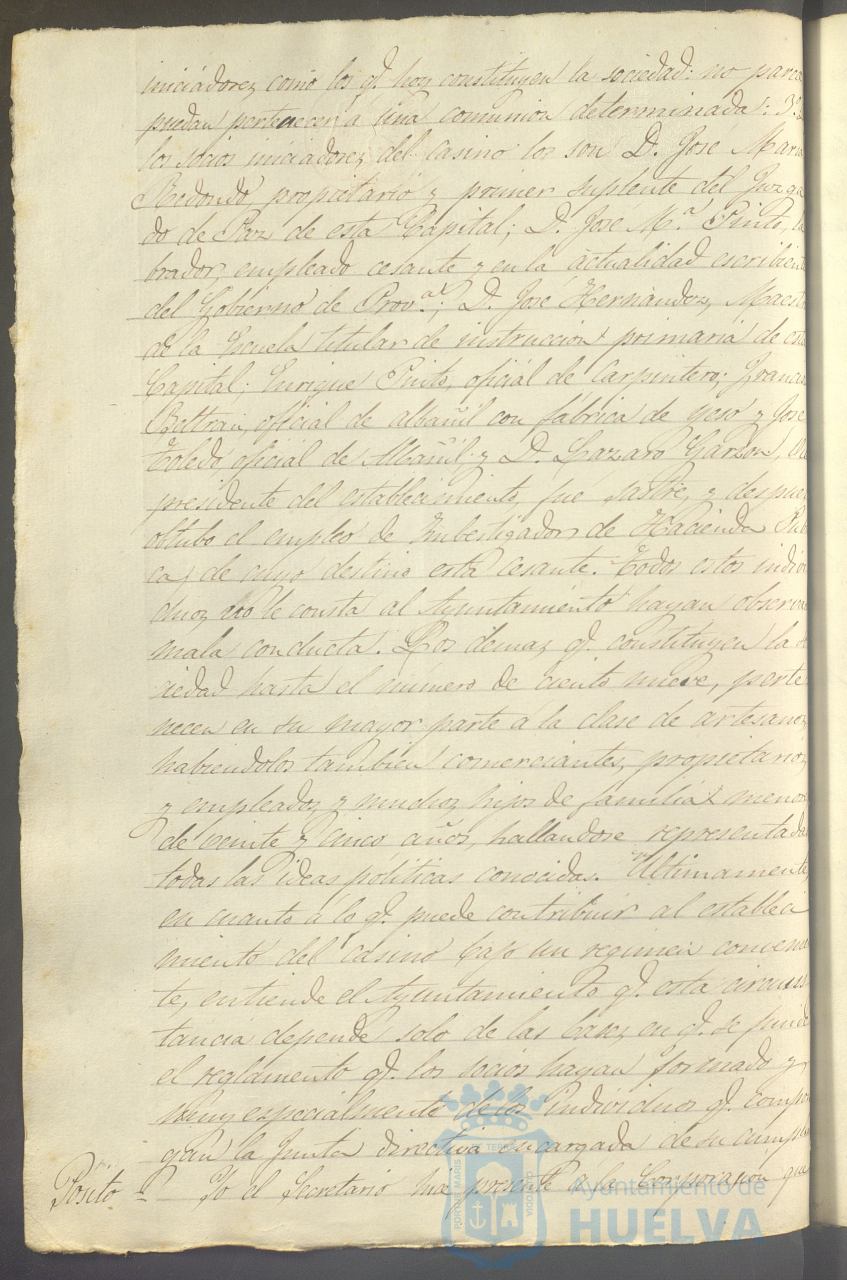 iniciadores como los q.e hoy constituyen la sociedad: no parece
puedan pertenecer á una comunion determinada: 3.º
los socios iniciadores del casino lo son D. José Maria
Redondo, propietario y primer suplente del Juzga
do de Paz de esta Capital; D. Jose M.ª Pinto, la
brador, empleado cesante y en la actualidad escribiente
del Gobierno de Prov.ª; D. José Hernandez, Maestro
de la Escuela titular de instruccion primaria de esta
Capital; Enrique Pinto, oficial de Carpintero; Francis
Beltran, oficial de albañil con fabrica de yeso y José
Toledo oficial de Albañil y D. Lazaro Garzon,
presidente del establecimiento, fue sastre, y despues
obtubo el empleo de Imbestigador de Hacienda Publi
ca, de cuyo destino está cesante. Todos estos indivi
duos no le consta al Ayuntamiento hayan observado
mala conducta. Los demas q.e constituyen la so
ciedad hasta el número de ciento nueve, perte
necen en su mayor parte á la clase de artesanos
habiendolos tambien comerciantes, propietarios
y empleados y muchos hijos de familia menores
de veinte y cinco años, hallandose representadas
todas las ideas politicas conocidas. Ultimamente,
en cuanto á lo q.e puede contribuir al estableci
miento del casino bajo un regimen convenien
te, entiende el Ayuntamiento q.e esta circuns
tancia depende solo de las bases en q.e se funde
el reglamento q.e los socios hayan formado y
muy especialmente de los individuos q.e compon
gan la Junta directiva encargada de su cumpli
Pósito = Yo el Secretario hice presente á la Corporacion que
PORTUS MARIS ET TERRAE CUSTODIA
Ayuntamiento de
HUELVA